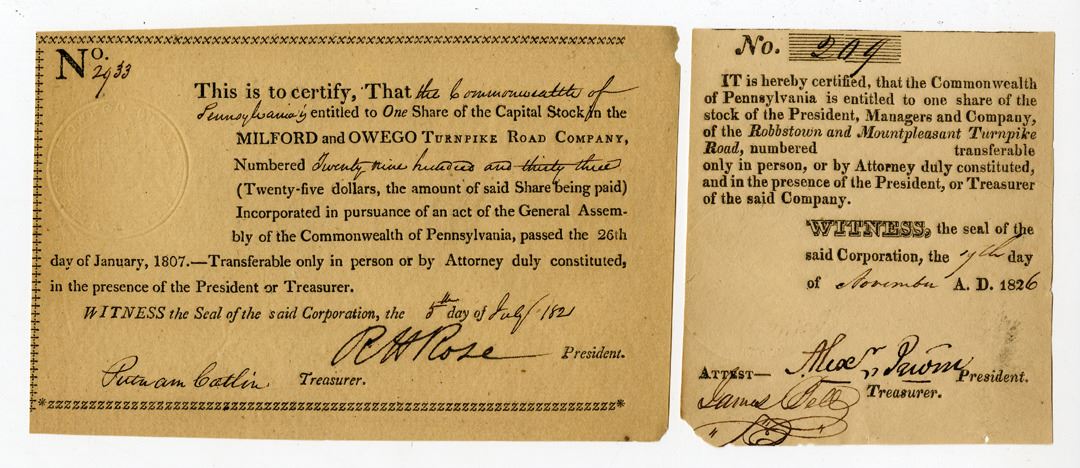 No. 2933
This is to certify, That the Commonwealth of
Pennsylvania is entitled to One Share of the Capital Stock in the
MILFORD and OWEGO TURNPIKE ROAD COMPANY,
Numbered Twenty nine hundred and thirty three
(Twenty-five dollars, the amount of said Share being paid)
Incorporated in pursuance of an act of the General Assem-
bly of the Commonwealth of Pennsylvania, passed the 26th
day of January, 1807.—Transferable only in person or by Attorney duly constituted,
in the presence of the President or Treasurer.
WITNESS the Seal of the said Corporation, the 5th day of July 1821
R H Rose President.
Putnam Catlin Treasurer.
No. 209
IT is hereby certified, that the Commonwealth
of Pennsylvania is entitled to one share of the
stock of the President, Managers and Company,
of the Robbstown and Mountpleasant Turnpike
Road, numbered transferable
only in person, or by Attorney duly constituted,
and in the presence of the President, or Treasurer
of the said Company.
WITNESS, the seal of the
said Corporation, the day
of November A. D. 1826
ATTEST— Alexr President.
James Treasurer.